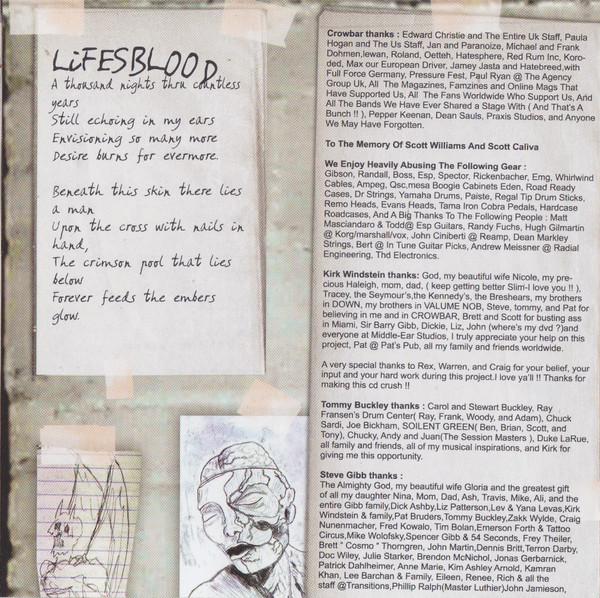 LiFESBLOOD
A thousand nights thru countless
years
Still echoing in my ears
Envisioning so many more
Desire burns for evermore.
Beneath this skin there lies
a man
Upon the cross with nails in
hand,
The crimson pool that lies
below
Forever feeds the embers
glow.
Crowbar thanks : Edward Christie and The Entire Uk Staff, Paula
Hogan and The Us Staff, Jan and Paranoize, Michael and Frank
Dohmen,Iewan, Roland, Oetteh, Hatesphere, Red Rum Inc, Koro-
ded, Max our European Driver, Jamey Jasta and Hatebreed,with
Full Force Germany, Pressure Fest, Paul Ryan @ The Agency
Group Uk, All The Magazines, Famzines and Online Mags That
Have Supported Us, All The Fans Worldwide Who Support Us, And
All The Bands We Have Ever Shared a Stage With ( And That's A
Bunch !! ), Pepper Keenan, Dean Sauls, Praxis Studios, and Anyone
We May Have Forgotten.
To The Memory Of Scott Williams And Scott Caliva
We Enjoy Heavily Abusing The Following Gear :
Gibson, Randall, Boss, Esp, Spector, Rickenbacher, Emg, Whirlwind
Cables, Ampeg, Qsc,mesa Boogie Cabinets Eden, Road Ready
Cases, Dr Strings, Yamaha Drums, Paiste, Regal Tip Drum Sticks,
Remo Heads, Evans Heads, Tama Iron Cobra Pedals, Hardcase
Roadcases, And A Big Thanks To The Following People : Matt
Masciandaro & Todd@ Esp Guitars, Randy Fuchs, Hugh Gilmartin
@ Korg/marshall/vox, John Ciniberti @ Reamp, Dean Markley
Strings, Bert @ In Tune Guitar Picks, Andrew Meissner @ Radial
Engineering, Thd Electronics.
Kirk Windstein thanks: God, my beautiful wife Nicole, my pre-
cious Haleigh, mom, dad, ( keep getting better Slim-I love you !! ),
Tracey, the Seymour's,the Kennedy's, the Breshears, my brothers
in DOWN, my brothers in VALUME NOB, Steve, tommy, and Pat for
believing in me and in CROWBAR, Brett and Scott for busting ass
in Miami, Sir Barry Gibb, Dickie, Liz, John (where's my dvd ?)and
everyone at Middle-Ear Studios, I truly appreciate your help on this
project, Pat @ Pat's Pub, all my family and friends worldwide.
A very special thanks to Rex, Warren, and Craig for your belief, your
input and your hard work during this project.I love ya'll !! Thanks for
making this cd crush !!
Tommy Buckley thanks : Carol and Stewart Buckley, Ray
Fransen's Drum Center( Ray, Frank, Woody, and Adam), Chuck
Sardi, Joe Bickham, SOILENT GREEN( Ben, Brian, Scott, and
Tony), Chucky, Andy and Juan(The Session Masters ), Duke LaRue,
all family and friends, all of my musical inspirations, and Kirk for
giving me this opportunity.
Steve Gibb thanks :
The Almighty God, my beautiful wife Gloria and the greatest gift
of all my daughter Nina, Mom, Dad, Ash, Travis, Mike, Ali, and the
entire Gibb family,Dick Ashby,Liz Patterson,Lev & Yana Levas,Kirk
Windstein & family,Pat Bruders,Tommy Buckley,Zakk Wylde, Craig
Nunenmacher, Fred Kowalo, Tim Bolan,Emerson Forth & Tattoo
Circus,Mike Wolofsky,Spencer Gibb & 54 Seconds, Frey Theiler,
Brett " Cosmo " Thorngren, John Martin,Dennis Britt,Terron Darby,
Doc Wiley, Julie Starker, Brendon McNichol, Jonas Gerbarnick,
Patrick Dahlheimer, Anne Marie, Kim Ashley Arnold, Kamran
Khan, Lee Barchan & Family, Eileen, Renee, Rich & all the
staff @Transitions,Phillip Ralph(Master Luthier)John Jamieson,